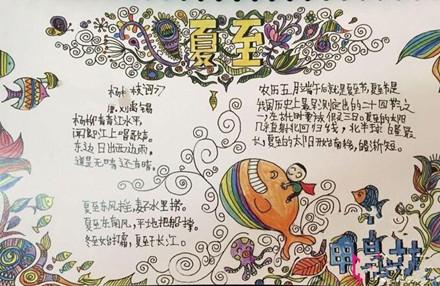 夏至
唐.刘禹锡
杨柳青青江水平,
闻郎江上唱歌声。
东边日出西边雨,
道是无晴还有晴。
夏至东风摇,麦子水里捞。
夏至东南风,平地把船撑。
夏至干长江。
农历五月端午后就是夏至节,夏至是
我国历史上最早测定出的二十四节气之
一,古时要放假三日。夏至的太阳
几乎直射北回归线,北半球白昼最
长,夏至的太阳开始南移,昼渐短。